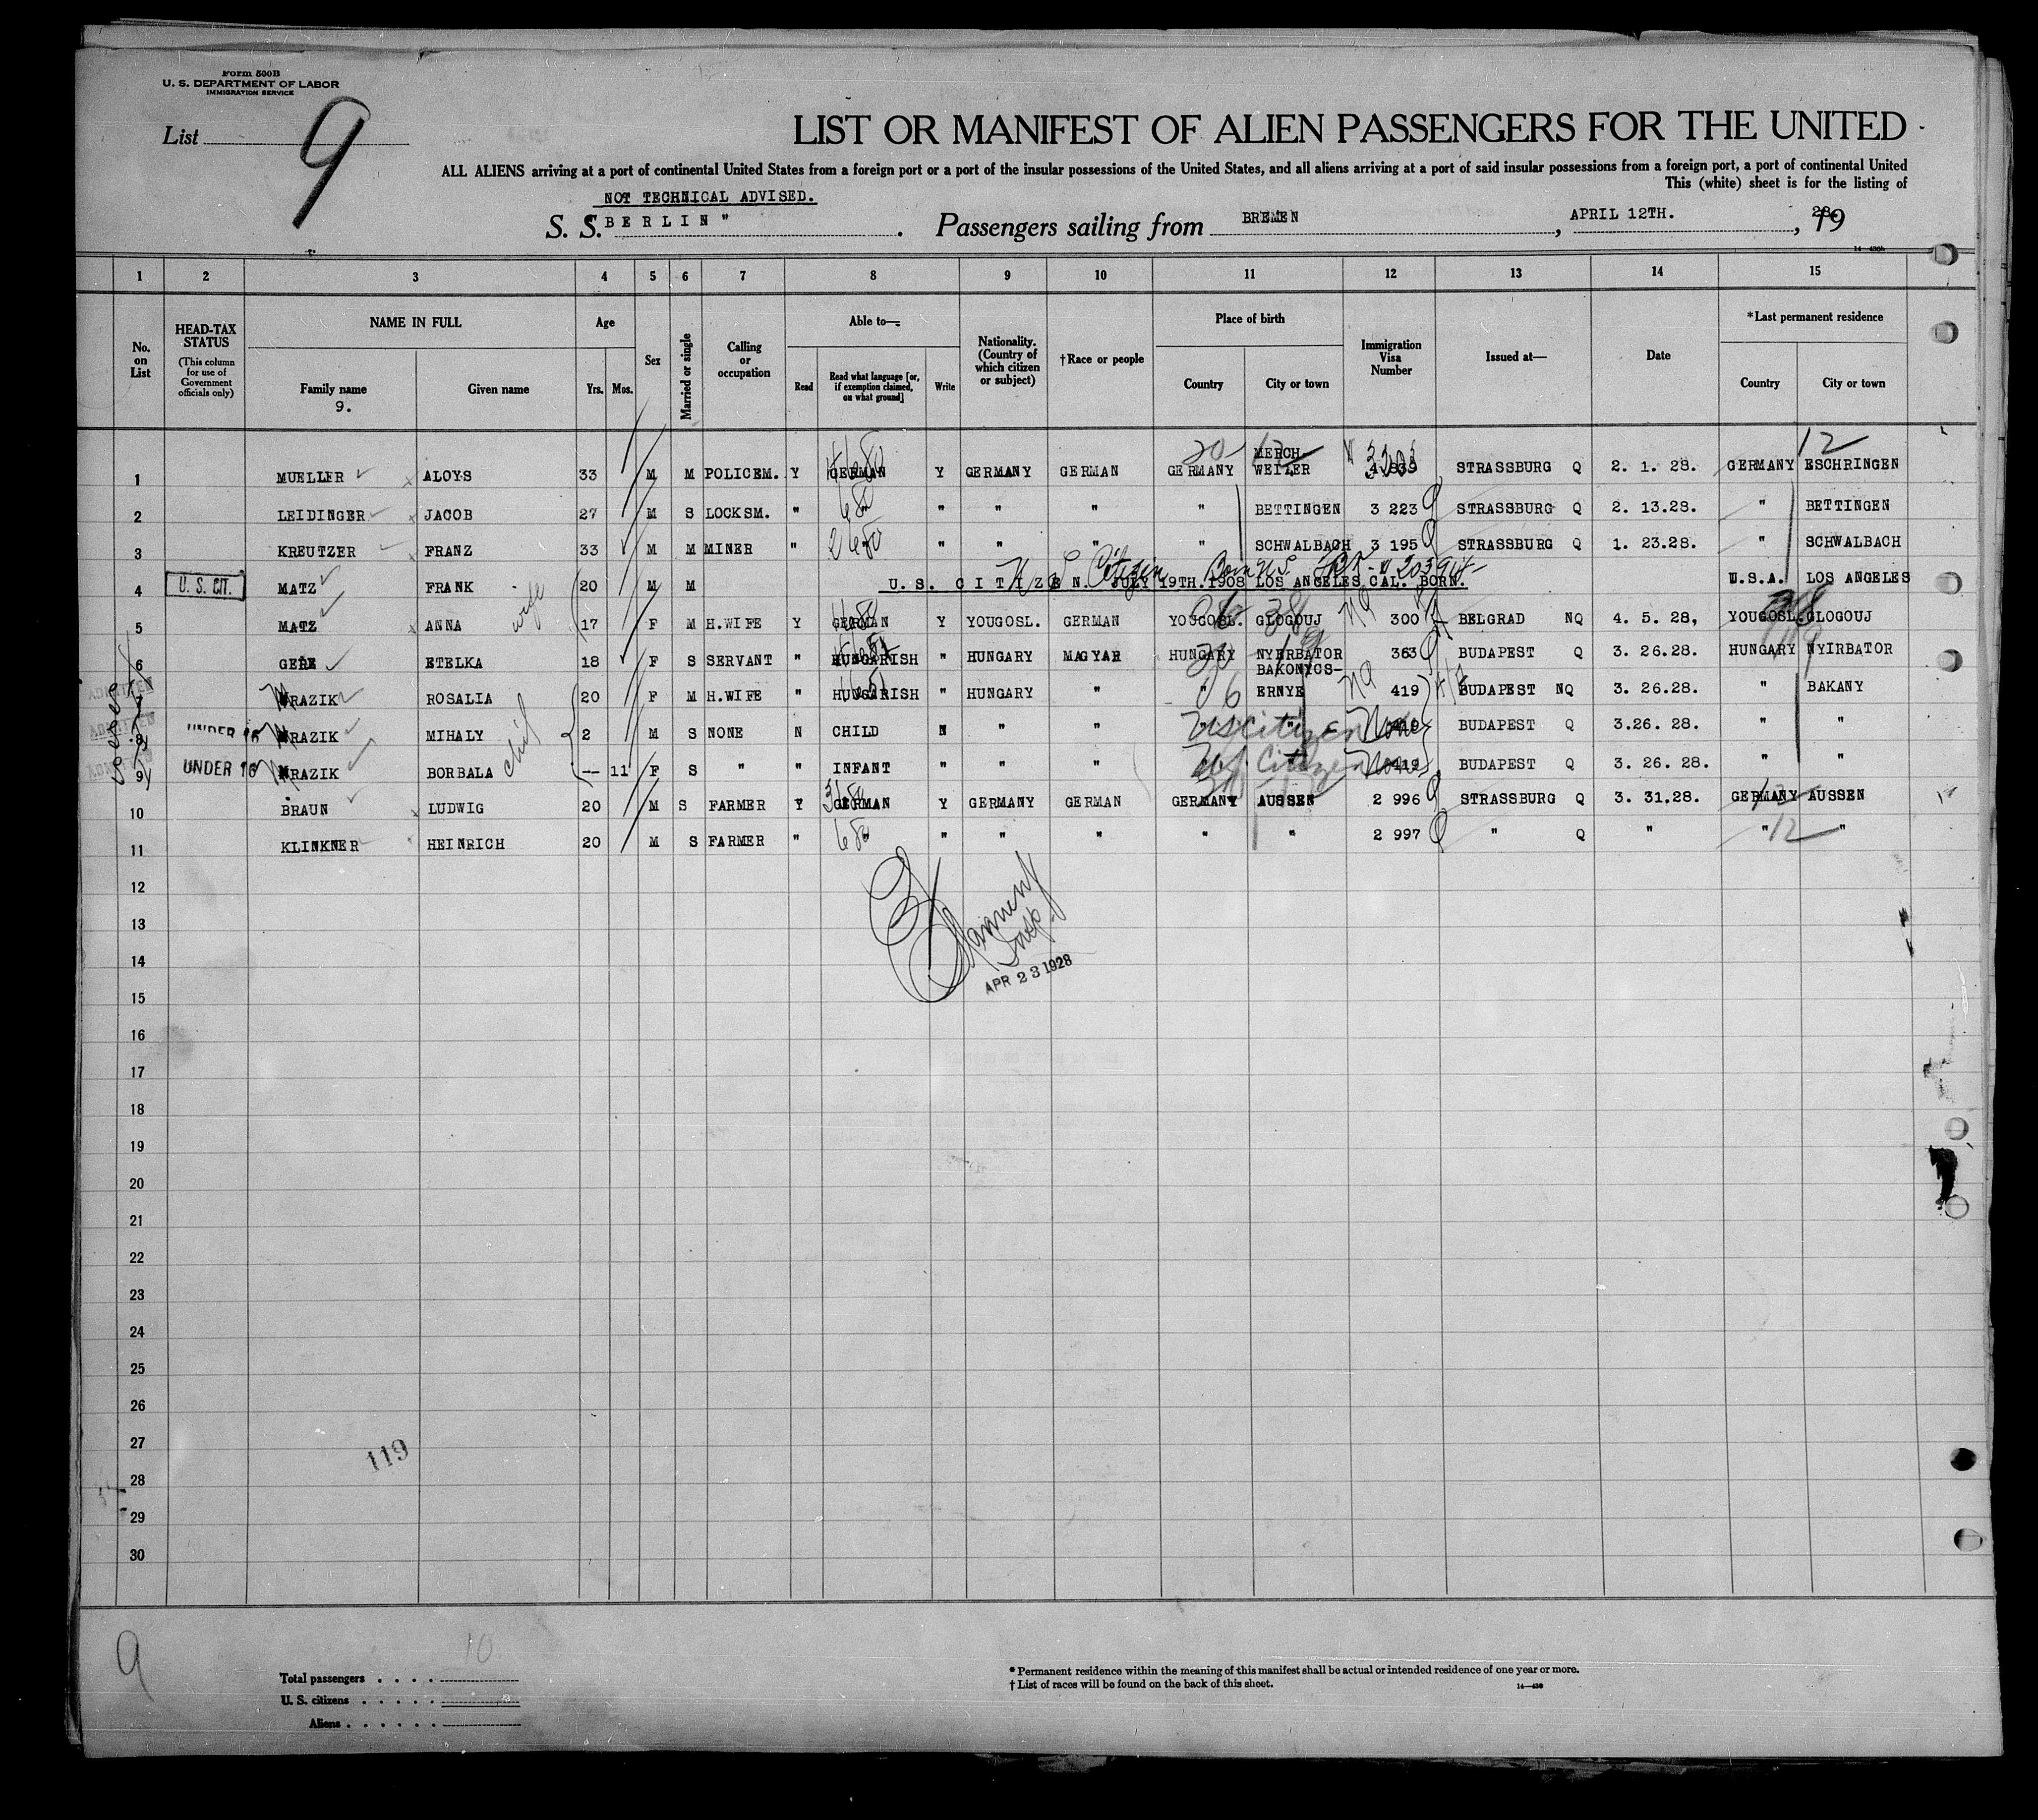 Form 500B
U. S. DEPARTMENT OF LABOR
IMMIGRATION SERVICE
List 9
LIST OR MANIFEST OF ALIEN PASSENGERS FOR THE UNITED
ALL ALIENS arriving at a port of continental United States from a foreign port or a port of the insular possessions of the United States, and all aliens arriving at a port of said insular possessions from a foreign port, a port of continental United
This (white) sheet is for the listing of
NOT TECHNICAL ADVISED.
S. S. "BERLIN". Passengers sailing from BREMEN, APRIL 12TH., 1928.
1 2 3 4 5 6 7 8 9 10 11 12 13 14 15
No. on List
HEAD-TAX STATUS
(This column for use of Government officials only)
NAME IN FULL
Family name
9.
Given name
Age
Yrs. Mos.
Sex
Married or single
Calling or occupation
Able to—
Read
Read what language [or, if exemption claimed, on what ground]
Write
Nationality. (Country of which citizen or subject)
†Race or people
Place of birth
Country
City or town
Immigration Visa Number
Issued at—
Date
*Last permanent residence
Country
City or town
1 MUELLER ALOYS 33 M M POLICEM. Y GERMAN Y GERMANY GERMAN GERMANY MERCH-WEILER STRASSBURG Q 2. 1. 28. GERMANY ESCHRINGEN
2 LEIDINGER JACOB 27 M S LOCKSM. " " " " " BETTINGEN 3 223 STRASSBURG Q 2. 13.28. " BETTINGEN
3 KREUTZER FRANZ 33 M M MINER " " " " " SCHWALBACH 3 195 STRASSBURG Q 1. 23.28. " SCHWALBACH
4 U. S. CIT. MATZ FRANK 20 M M U.S. CITIZEN. JULY 19TH.1908 LOS ANGELES CAL. BORN. U.S.A. LOS ANGELES
U S Citizen Born U.S.
5 MATZ ANNA wife 17 F M H.WIFE Y GERMAN Y YOUGOSL. GERMAN YOUGOSL. GLOGOUJ 300 BELGRAD NQ 4. 5. 28, YOUGOSL. GLOGOUJ
6 GERE ETELKA 18 F S SERVANT " HUNGARISH " HUNGARY MAGYAR HUNGARY NYERBATOR 363 BUDAPEST Q 3. 26.28. HUNGARY NYIRBATOR
7 MRAZIK ROSALIA 20 F M H.WIFE " HUNGARISH " HUNGARY " " BAKONYCS-ERNYE 419 BUDAPEST NQ 3. 26.28. " BAKANY
8 UNDER 16 MRAZIK MIHALY 2 M S NONE N CHILD N " " US Citizen None BUDAPEST Q 3.26. 28. " "
9 UNDER 16 MRAZIK BORBALA -- 11 F S " " INFANT " " " US Citizen None BUDAPEST Q 3. 26. 28. " "
10 BRAUN LUDWIG 20 M S FARMER Y GERMAN Y GERMANY GERMAN GERMANY AUSSEN 2 996 STRASSBURG Q 3. 31.28. GERMANY AUSSEN
11 KLINKNER HEINRICH 20 M S FARMER " " " " " " " 2 997 " Q " " "
12
13
14
Insp.
APR 23 1928
15
16
17
18
19
20
21
22
23
24
25
26
27
119
28
29
30
9
10
Total passengers
U. S. citizens
Aliens
* Permanent residence within the meaning of this manifest shall be actual or intended residence of one year or more.
† List of races will be found on the back of this sheet.
14—430